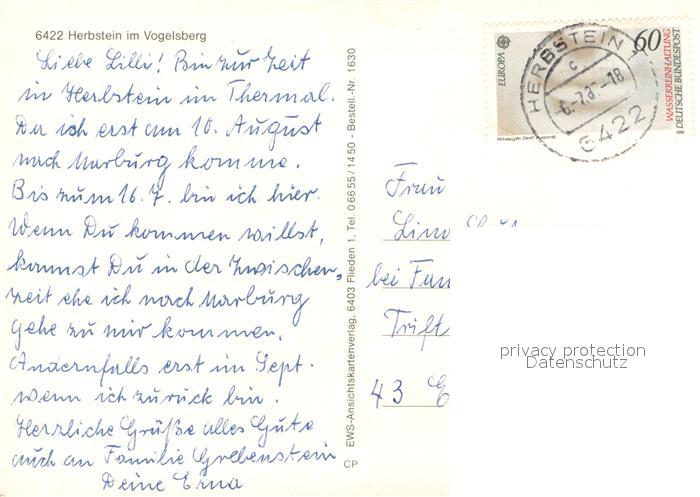 6422 Herbstein im Vogelsberg
Liebe Lilli! Bin zur Zeit
in Herbstein im Thermal.
Da ich erst am 10. August
nach Marburg komme.
Bis zum 16.7. bin ich hier.
Wenn Du kommen willst,
kannst Du in der Zwischen-
zeit ehe ich nach Marburg
gehe zu mir kommen.
Andernfalls erst im Sept.
wenn ich zurück bin.
Herzliche Grüße alles Gute
auch an Familie Grebenstein
Deine Erna
EWS-Ansichtskartenverlag, 6403 Flieden 1, Tel. 06655/1450 - Bestell.-Nr. 1630
CP
EUROPA
60
WASSERREINHALTUNG
DEUTSCHE BUNDESPOST
HERBSTEIN 1
c
-18
6422
Frau
bei
Trift
43
privacy protection
Datenschutz